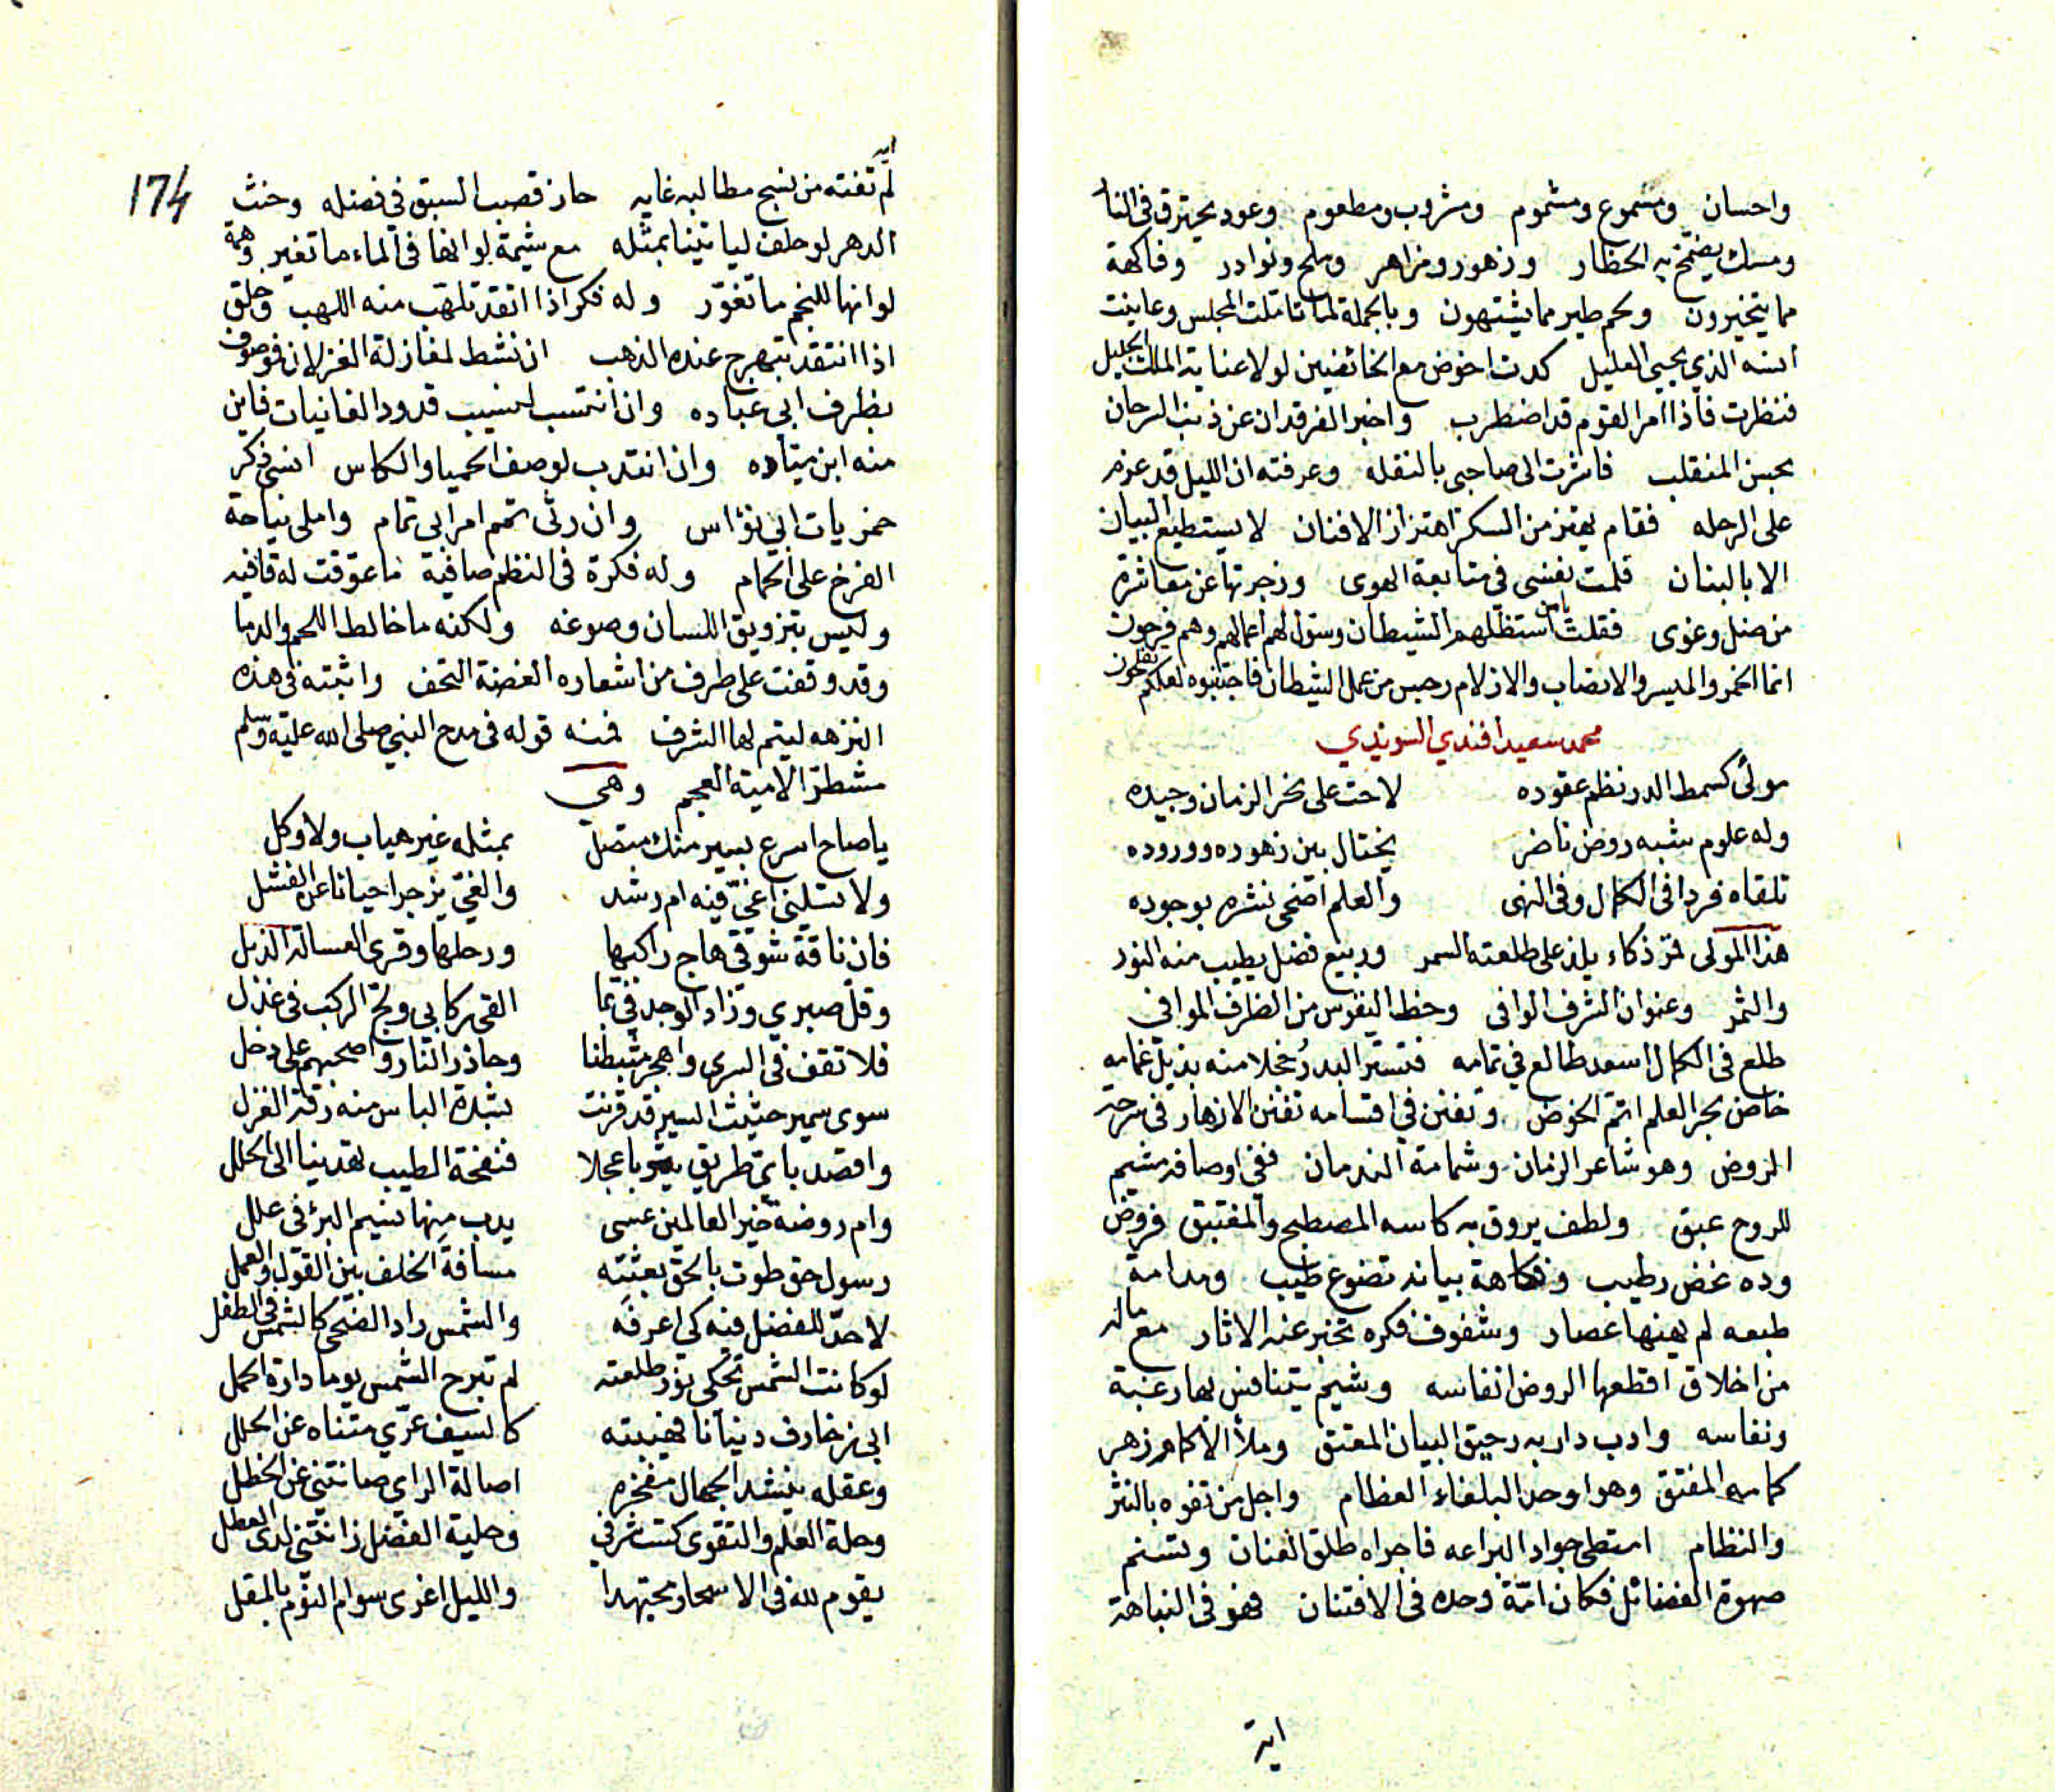 واحسان ومسموع ومشموم ومشروب ومطعوم وعود يحترق في النار
ومسك يضمخ به الحظار وزهور ومزاهر وملح ونوادر وفاكهة
مما يتخيرون ولحم طير مما يشتهون وبالجملة لما تاملت المجلس وعاينت
انسه الذي يحيي العليل كدت اخوض مع الخائضين لولا عناية الملك الجليل
فنظرت فاذا امر القوم قد اضطرب واخبر الفرقدان عن ذنب السرحان
بحسن المنقلب فاشرت الى صاحبي بالنقله وعرفته ان الليل قد عزم
على الرحله فقام يهتز من السكر اهتزاز الافنان لا يستطيع البيان
الا بالبنان فلمت نفسي في متابعة الهوى وزجرتها عن معاشرة
من ضل وغوى فقلت يا من استظلهم الشيطان وسول لهم اعمالهم وهم فرحون
انما الخمر والميسر والانصاب والازلام رجس من عمل الشيطان فاجتنبوه لعلكم تفلحون
محمد سعيد افندي السويدي
مولى كسمط الدر نظم عقوده لاحت على نحر الزمان وجيده
وله علوم شبه روض ناضر يختال بين زهوره ووروده
تلقاه فردا في الكمال وفي النهى والعلم اضحى نشره بوجوده
هذا المولى قمر ذكاء يلذ على طلعته السمر وربيع فضل يطيب منه النور
والثمر وعنوان الشرف الوافي وحظ النفوس من الظرف الموافي
طلع في الكمال اسعد طالع في تمامه فتستر البدر خجلا منه بذيل غمامه
خاض بحر العلم اتم الخوض وتفنن في اقسامه تفنن الازهار في سرحة
الروض وهو شاعر الزمان وشمامة الندمان ففي اوصافه مشيم
للروح عبق ولطف يروق به كاسه المصطبح والمغتبق فروض
وده غض رطيب وفكاهة بيانه تضوع طيب ومدامة
طبعه لم يهنها عصار وشفوف فكره تخبر عنه الاثار مع ماله
من اخلاق اقطعها الروض انفاسه وشيم يتنافس بها رغبة
ونفاسه وادب دار به رحيق البيان المعتق وملأ الاكمام زهر
كمامه المفتق وهو اوحد البلغاء العظام واجل من تفوه بالنثر
والنظام امتطى جواد البراعه فاجراه طلق العنان وتسنم
صهوة الفضائل فكان امة وحده في الافتنان فهو في النباهة
اية
174
اية
لم تفته من نسج مطالبه غايه حاز قصب السبق في فضله وحنث
الدهر لو حلف لياتينا بمثله مع شيمة لو انها في الماء ما تغير وهمة
لو انها للنجم ما تغور وله فكر اذا اتقد تلهب منه اللهب وخلق
اذا انتقد تبهرج عنده الذهب ان نشط لمغازلة الغزلان فموصوف
بظرف ابي عباده وان انتسب لنسيب قدود الغانيات فاين
منه ابن مياده وان انتدب لوصف الحميا والكاس انسى ذكر
خمريات ابي نؤاس وان رثى تمم امر ابي تمام واملى نياحة
الفرخ على الحمام وله فكرة في النظم صافية ما عوقت له قافيه
وليس بتزويق اللسان وصوغه ولكنه ما خالط اللحم والدما
وقد وقفت على طرف من اشعاره الغضة التحف واثبته في هذه
النزهه ليتم لها الشرف فمنه قوله في مدح النبي صلى الله عليه وسلم
مشطرا لامية العجم وهي
يا صاح اسرع بسير منك متصل بمثله غير هياب ولا وكل
ولا تسلني اغي فيه ام رشد والغي يزجر احيانا عن الفشل
فان ناقة شوقي هاج راكبها ورحلها وقرى العسالة الذبل
وقل صبري وزاد الوجد في بما القى ركابي ولج الركب في عذل
فلا تقف في السرى واهجر مثبطنا وحاذر الناس واصحبهم على دخل
سوى سمير حثيث السير قد قرنت بشدة الباس منه رقة الغزل
واقصد باي طريق يثربا عجلا فنفحة الطيب تهدينا الى الحلل
وام روضة خير العالمين عسى يدب منها نسيم البرء في علل
رسول حق طوت بالحق بعثته مسافة الخلف بين القول والعمل
لا حد للفضل فيه كي اعرفه والشمس راد الضحى كالشمس في الطفل
لو كانت الشمس تحكي نور طلعته لم تبرح الشمس يوما دارة الحمل
ابى زخارف دنيانا فهيبته كالسيف عري متناه عن الخلل
وعقله ينشد الجهال مفخره اصالة الراي صانتني عن الخطل
وحلة العلم والتقوى كست شرفي وحلية الفضل زانتني لدى العطل
يقوم لله في الاسحار مجتهدا والليل اغرى سوام النوم بالمقل